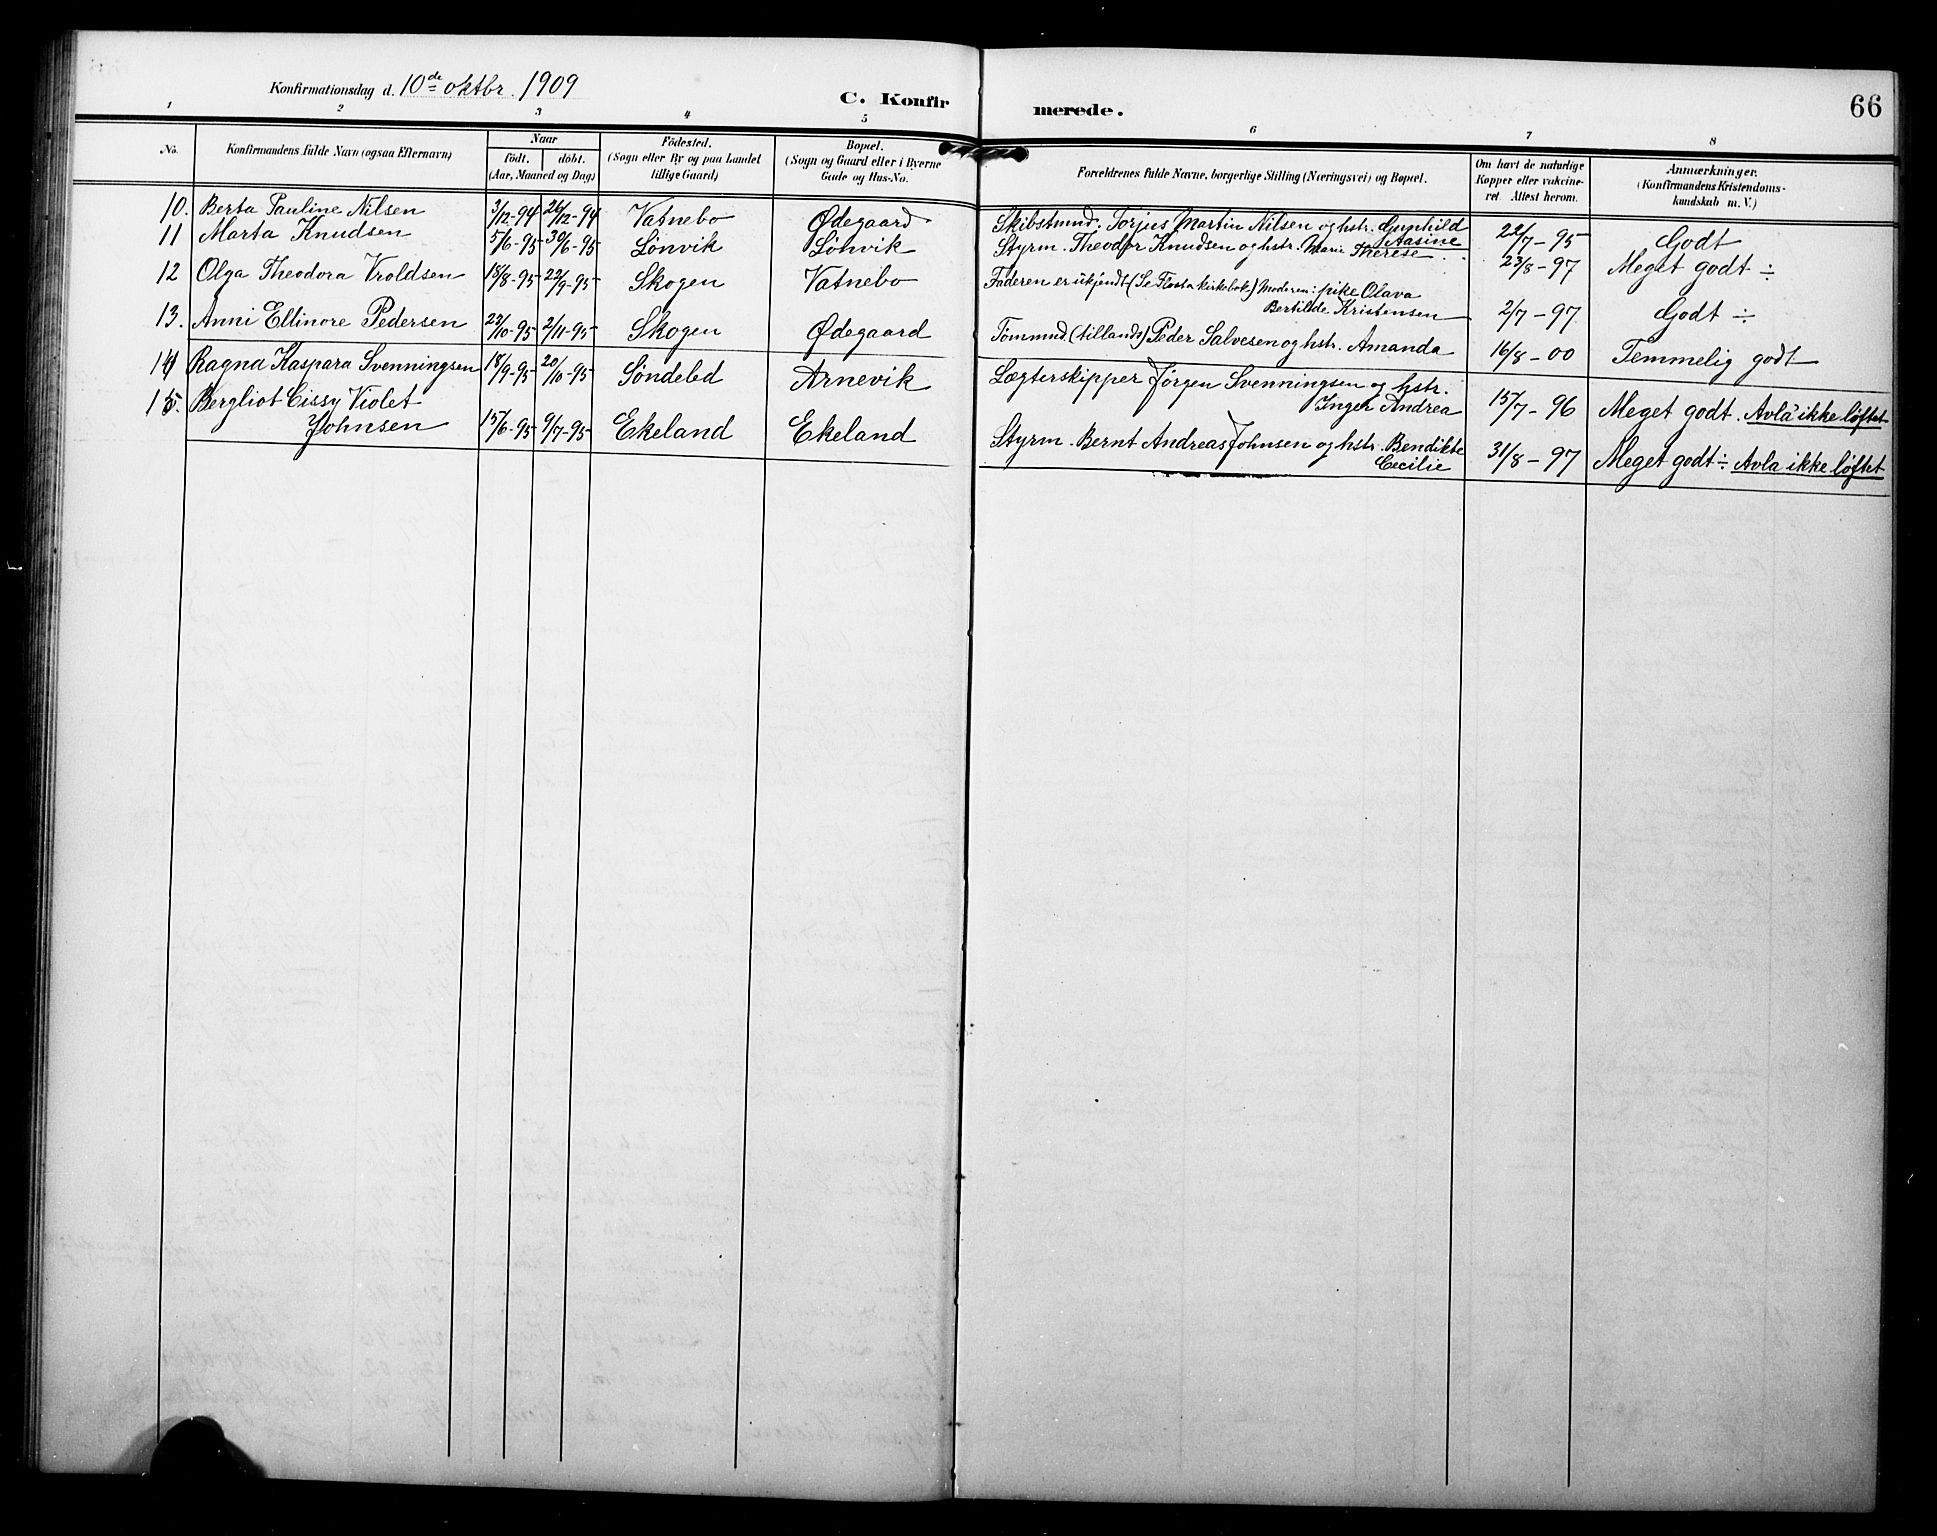 Konfirmationsdag d. 10de oktbr. 1909
C. Konfirmerede.
66
1 2 3 4 5 6 7 8
No.
Konfirmandens fulde Navn (ogsaa Efternavn)
Naar
födt. döbt.
(Aar, Maaned og Dag)
Födested.
(Sogn eller By og paa Landet
tillige Gaard)
Bopæl.
(Sogn og Gaard eller i Byerne
Gade og Hus-No.
Forældrenes fulde Navne, borgerlige Stilling (Næringsvei) og Bopæl.
Om havt de naturlige
Kopper eller vakcine-
ret Attest herom.
Anmærkninger.
(Konfirmandens Kristendoms-
kundskab m. V.)
10. Berta Pauline Nilsen 3/12-94 26/12-94 Vatnebo Ødegaard Skibstmd. Torjus Martin Nilsen og hstr. Gunhild
Aasine 22/7-95 Godt
11 Marta Knudsen 5/6-95 30/6-95 Lønvik Lønvik Styrm. Theodor Knudsen og hstr. Marie Therese. 23/8-97 Meget godt ÷
12 Olga Theodora Vroldsen 18/8-95 22/9-95 Skogen Vatnebo Faderen er ukjendt (Se Flosta kirkebok) Moderen: pike Olava
Bertilde Kristensen 2/7-97 Godt ÷
13. Anni Ellinore Pedersen 22/10-95 2/11-95 Skogen Ødegaard Tømmnd. (tillands) Peder Salvesen og hstr. Amanda 16/8-00 Temmelig godt
14 Ragna Kaspara Svenningsen 18/9-95 20/10-95 Söndeled Arnevik Lægterskipper Jørgen Svenningsen og hstr.
Inger Andrea 15/7-96 Meget godt. Avla ikke løftet
15. Bergliot Cissy Violet
Johnsen 15/6-95 9/7-95 Ekeland Ekeland Styrm. Bernt Andreas Johnsen og hstr. Bendikte
Cecilie 31/8-97 Meget godt ÷ Avla ikke løftet